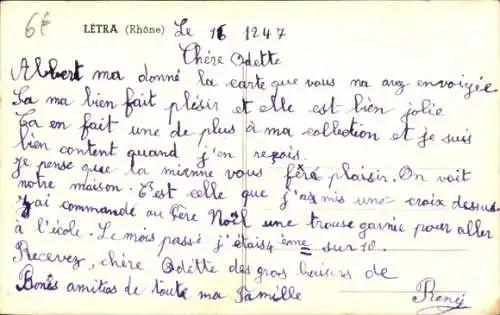 6f
LÉTRA (Rhône) Le 16 12 47
Chére Odette
Albert ma donné la carte que vous na avez envoigée
Sa ma bien fait plésir et elle est bien jolie
Ça en fait une de plus à ma collection et je suis
bien content quand j'en reçois.
je pense que la mienne vous féra plaisir. On voit
notre maison. C'est celle que j'ai mis une croix dessus.
J'ai commandé au Père Noël une trousse garnie pour aller
à l'école. Le mois passé j'étais 4 ème sur 10.
Recevez, chère Odette des gros baisers de
Bonês amitiés de toute ma Famille René